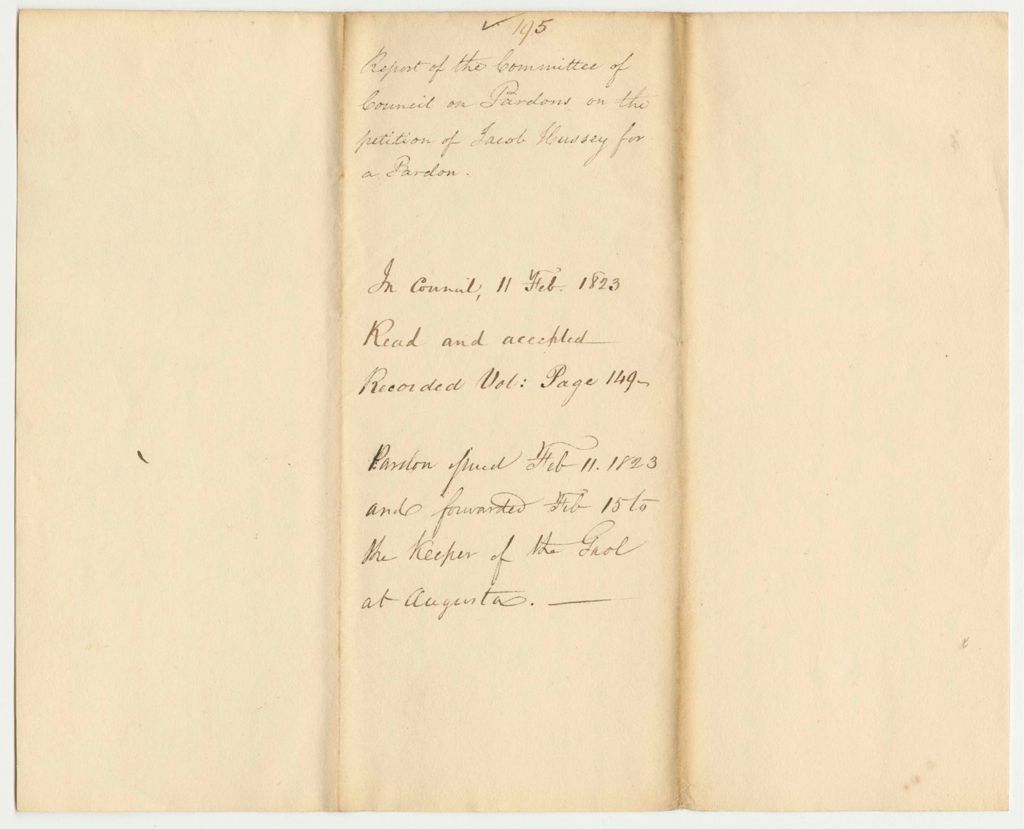 ✓ 195
Report of the Committee of
Council on Pardons on the
petition of Jacob Hussey for
a Pardon.
In Council, 11 Feb. 1823
Read and accepted
Recorded Vol: Page 149
Pardon issued Feb 11. 1823
and forwarded Feb 15 to
the Keeper of the Gaol
at Augusta. —